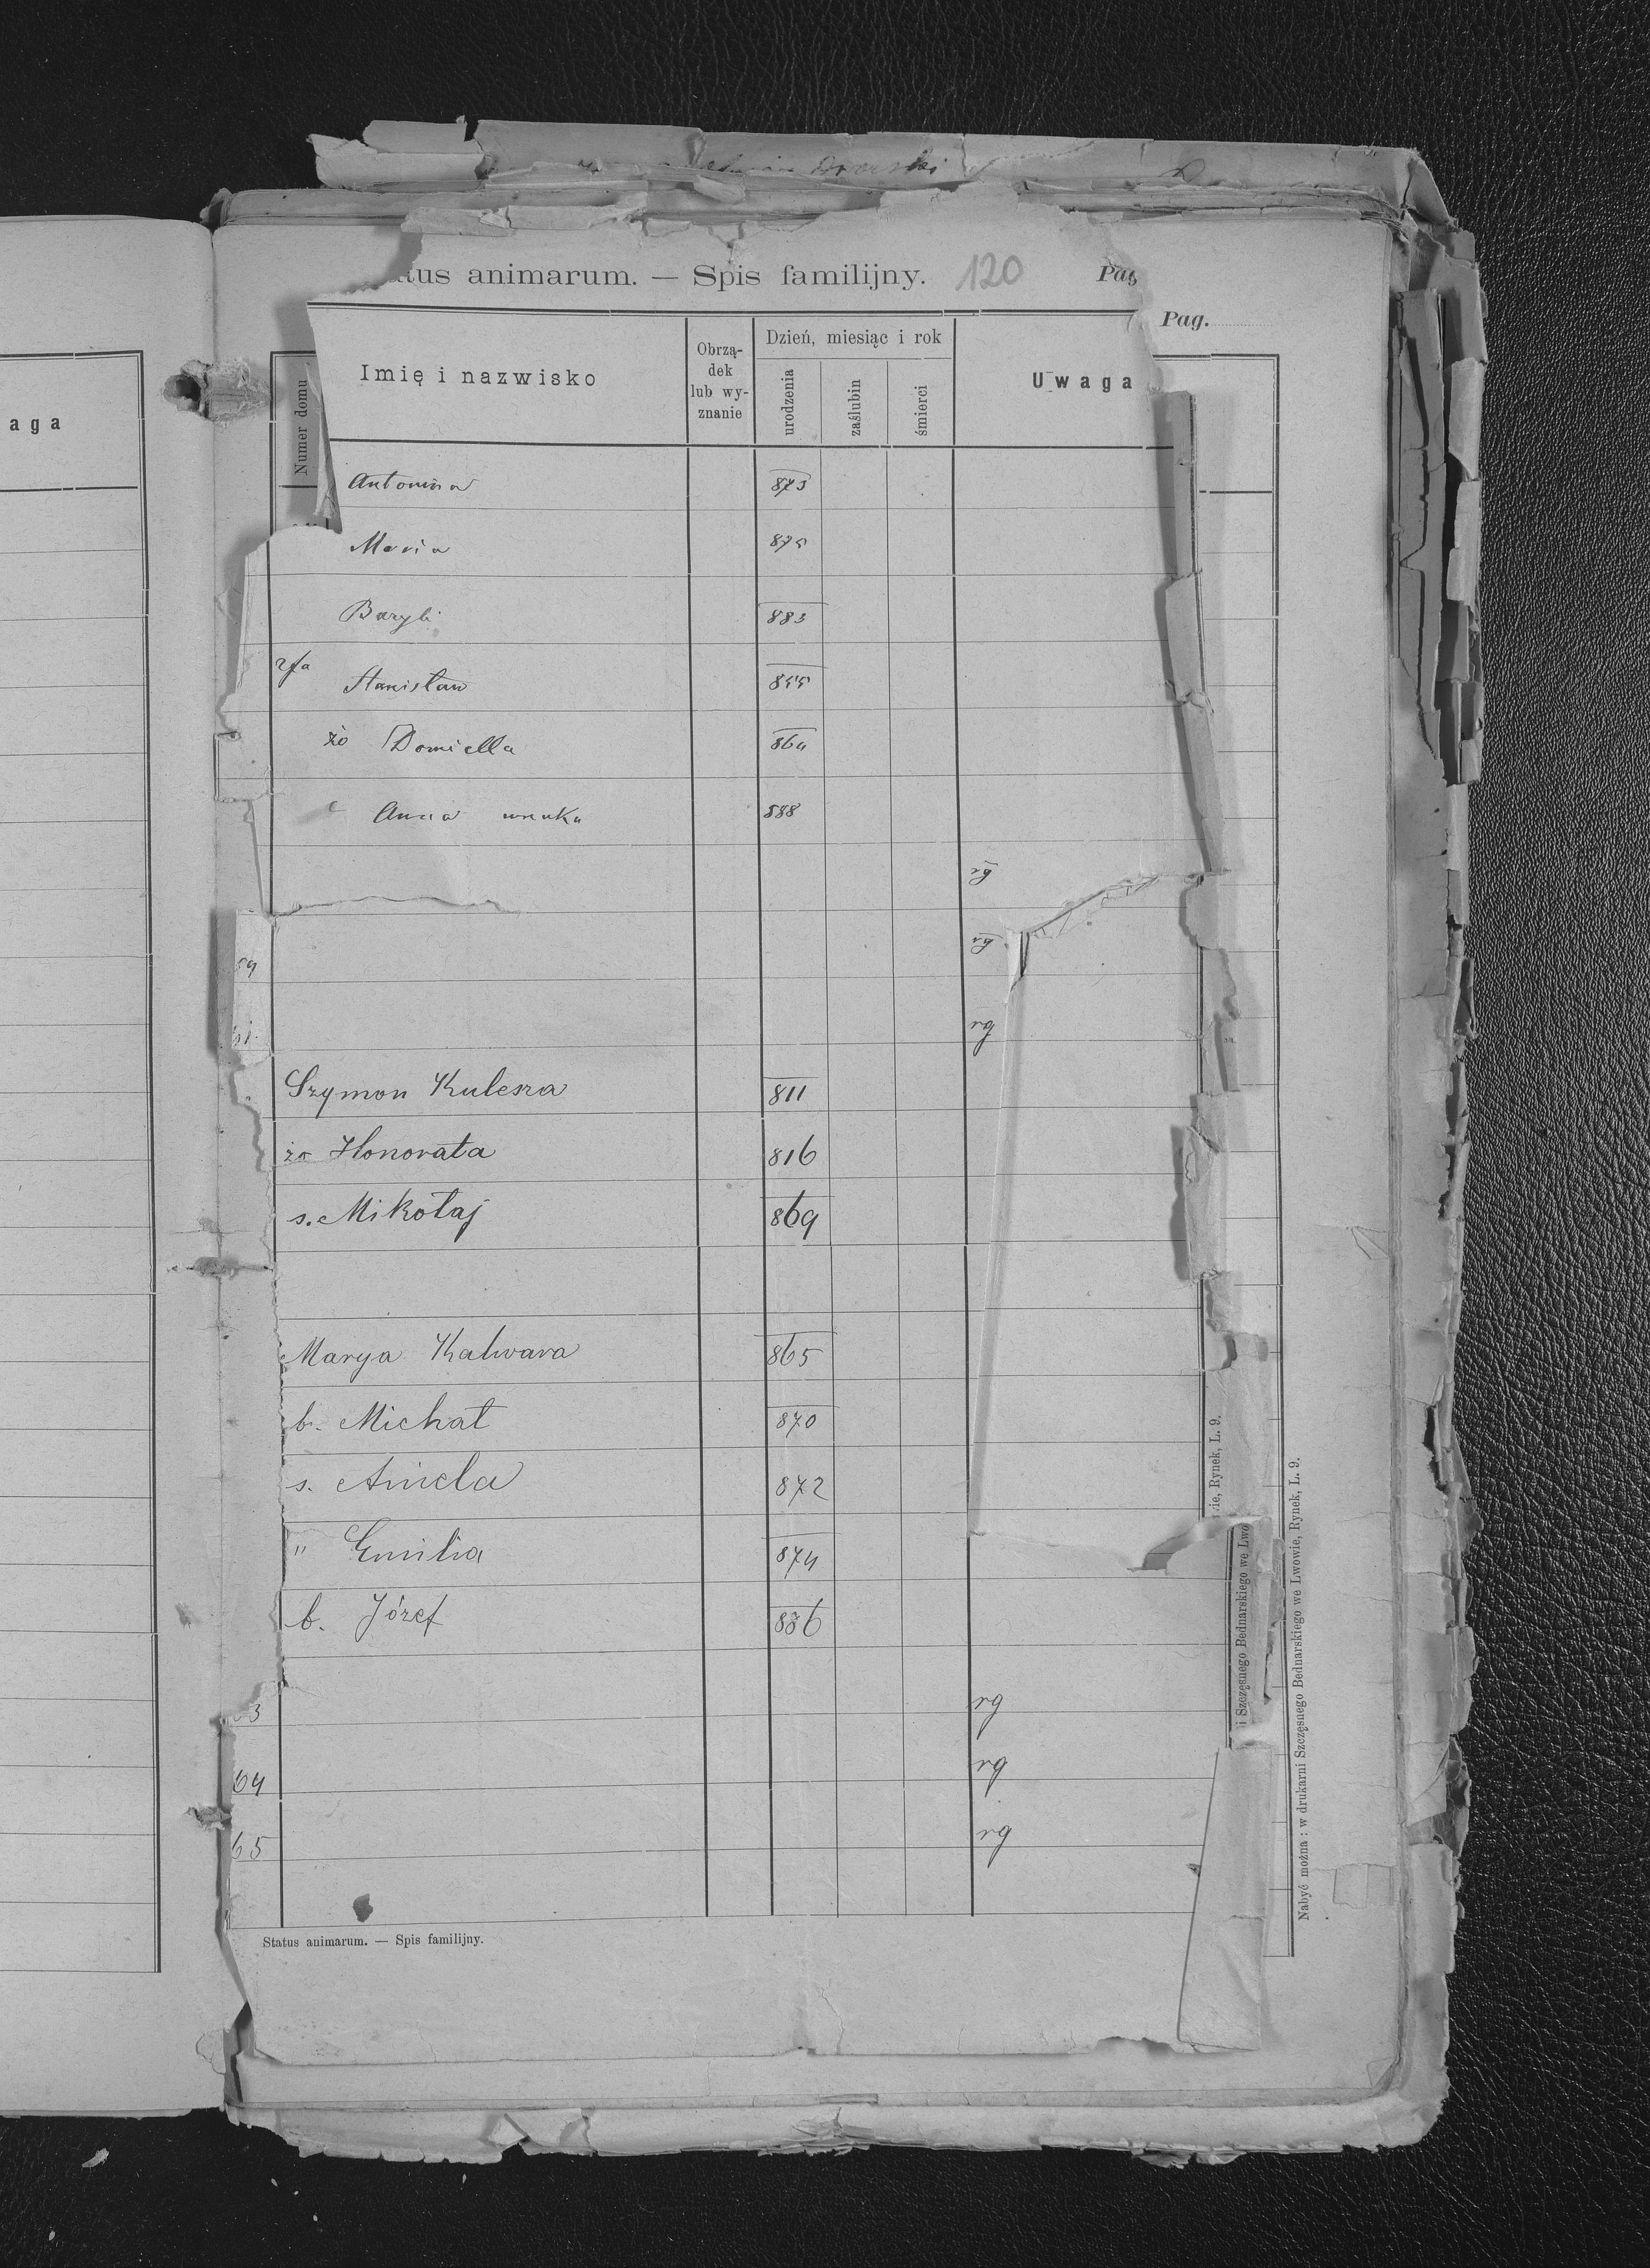 Dworski
tus animarum. — Spis familijny. 120 Pag
Pag.
aga
Numer domu
Imię i nazwisko
Obrzą-
dek
lub wy-
znanie
Dzień, miesiąc i rok
urodzenia
zaślubin
śmierci
Uwaga
Antonina 873
Maria 875
Baryli 883
Stanisław 855
żo Domicella 864
Anna wnuka 888
rg
89 rg
61 rg
Szymon Kulesza 811
żo Honorata 816
s. Mikołaj 869
Marya Kalwara 865
b. Michał 870
s. Aniela 872
" Emilia 874
b. Józef 886
63 rg
64 rg
65 rg
Status animarum. — Spis familijny.
ie, Rynek, L. 9.
i Szczęsnego Bednarskiego we Lwo
Nabyć można: w drukarni Szczęsnego Bednarskiego we Lwowie, Rynek, L. 9.